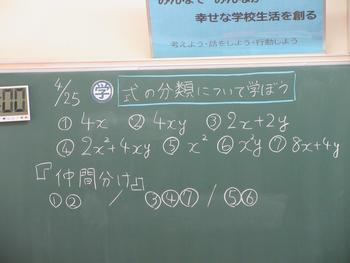 幸せな学校生活を創る
考えよう・話をしよう・行動しよう
4/25 学 式の分類について学ぼう
① 4x ② 4xy ③ 2x+2y
④ 2x²+4xy ⑤ x² ⑥ x²y ⑦ 8x+4y
『仲間分け』
①② / ③④⑦ / ⑤⑥